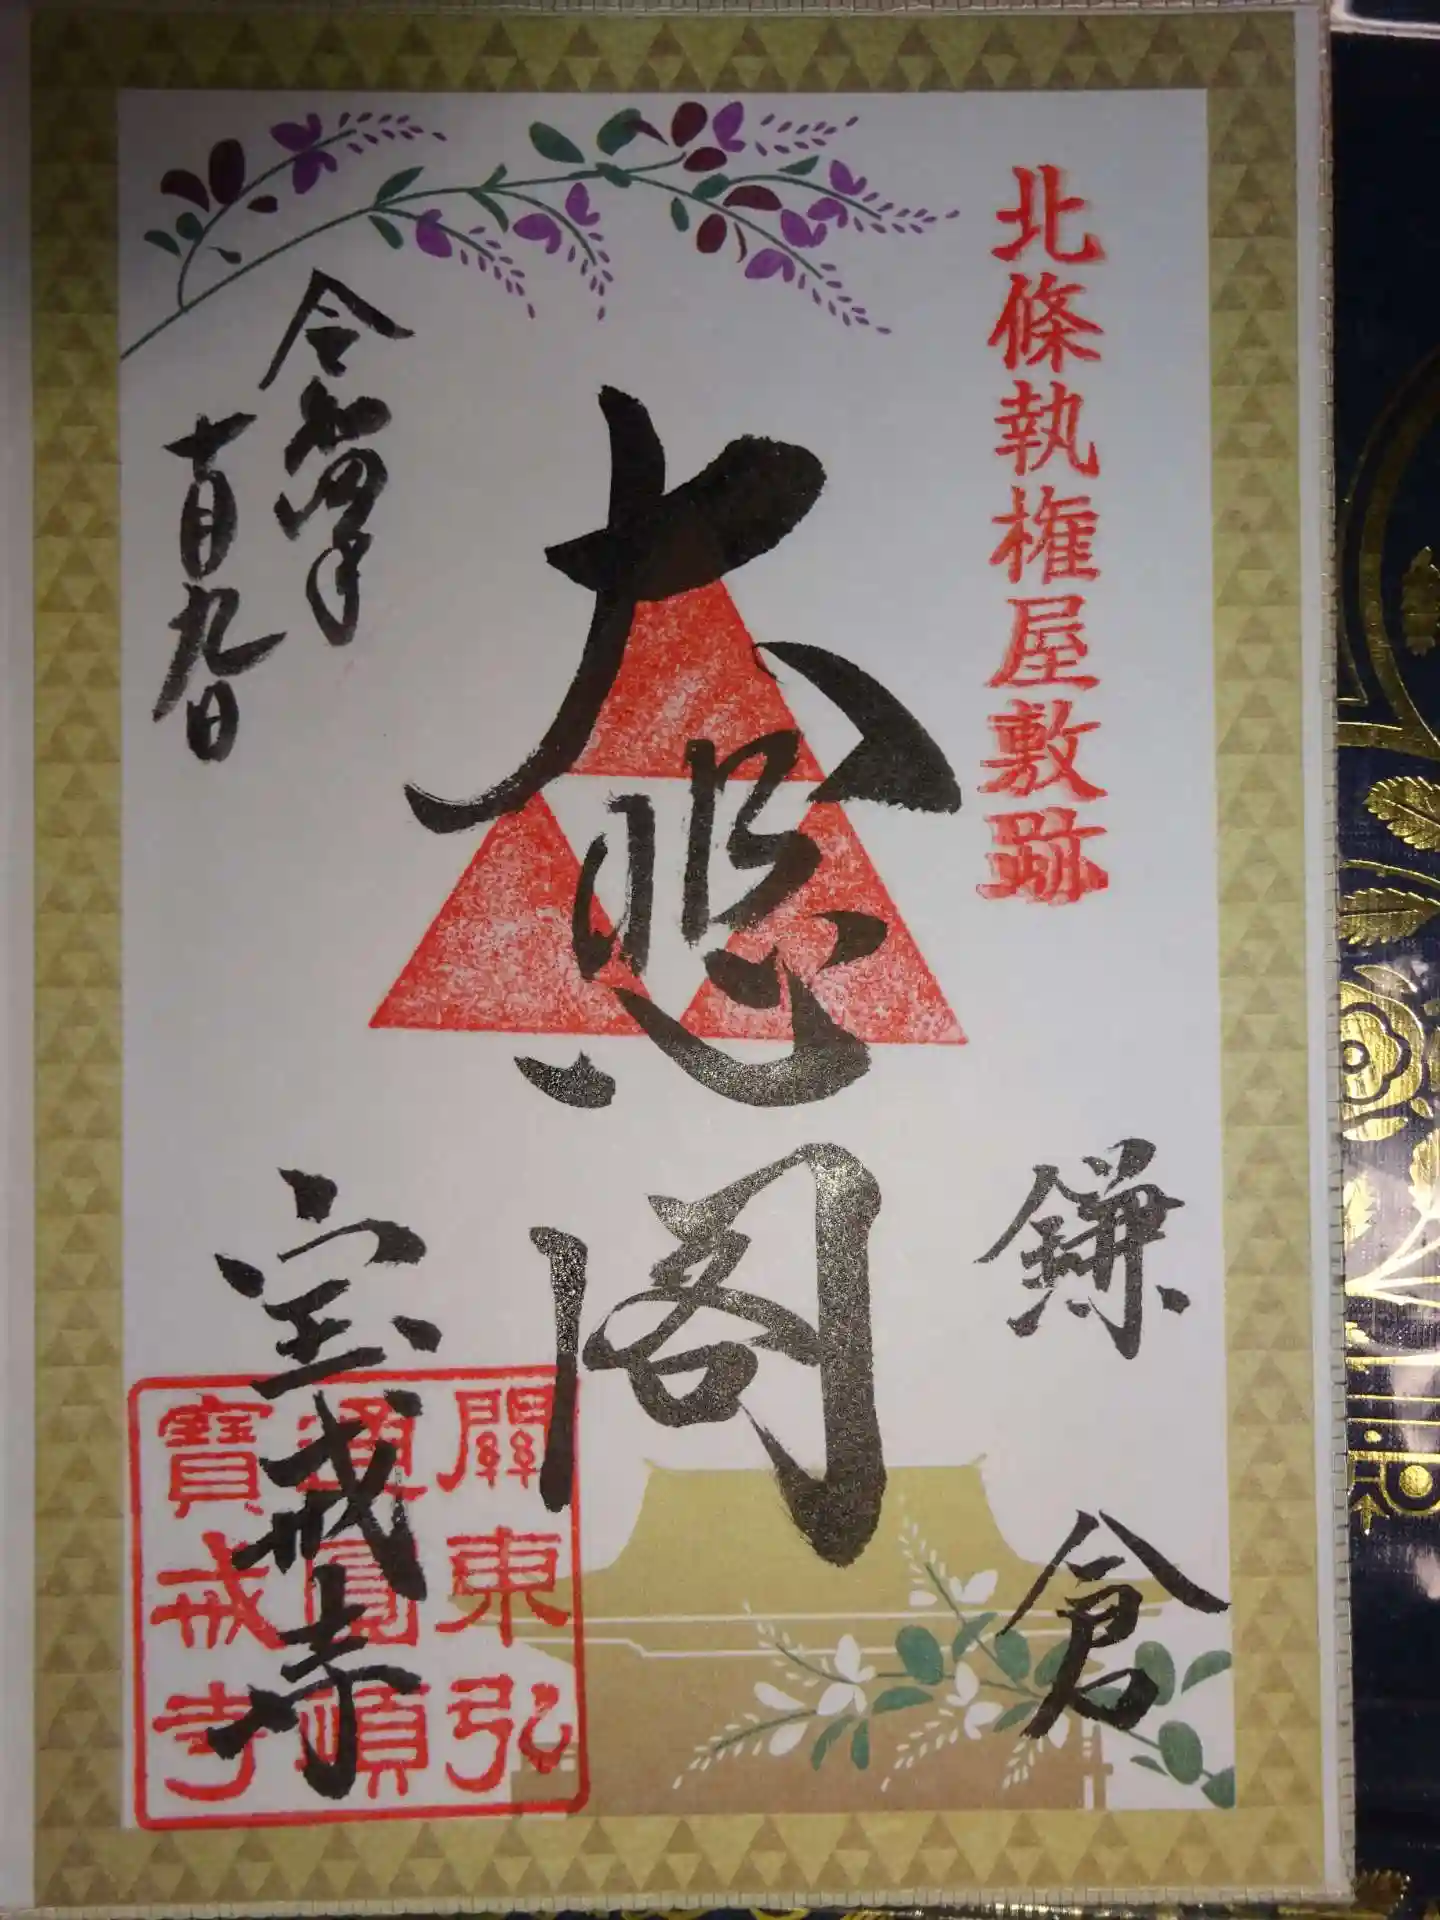 北條執権屋敷跡
鎌倉
大悲閣
令和四年
十月九日
宝戒寺
關東弘
通圓頓
寶戒寺